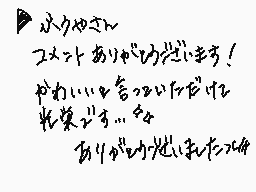 ふうやさん
コメントありがとうございます!
かわいいと言っていただけて
光栄です...
ありがとうございました